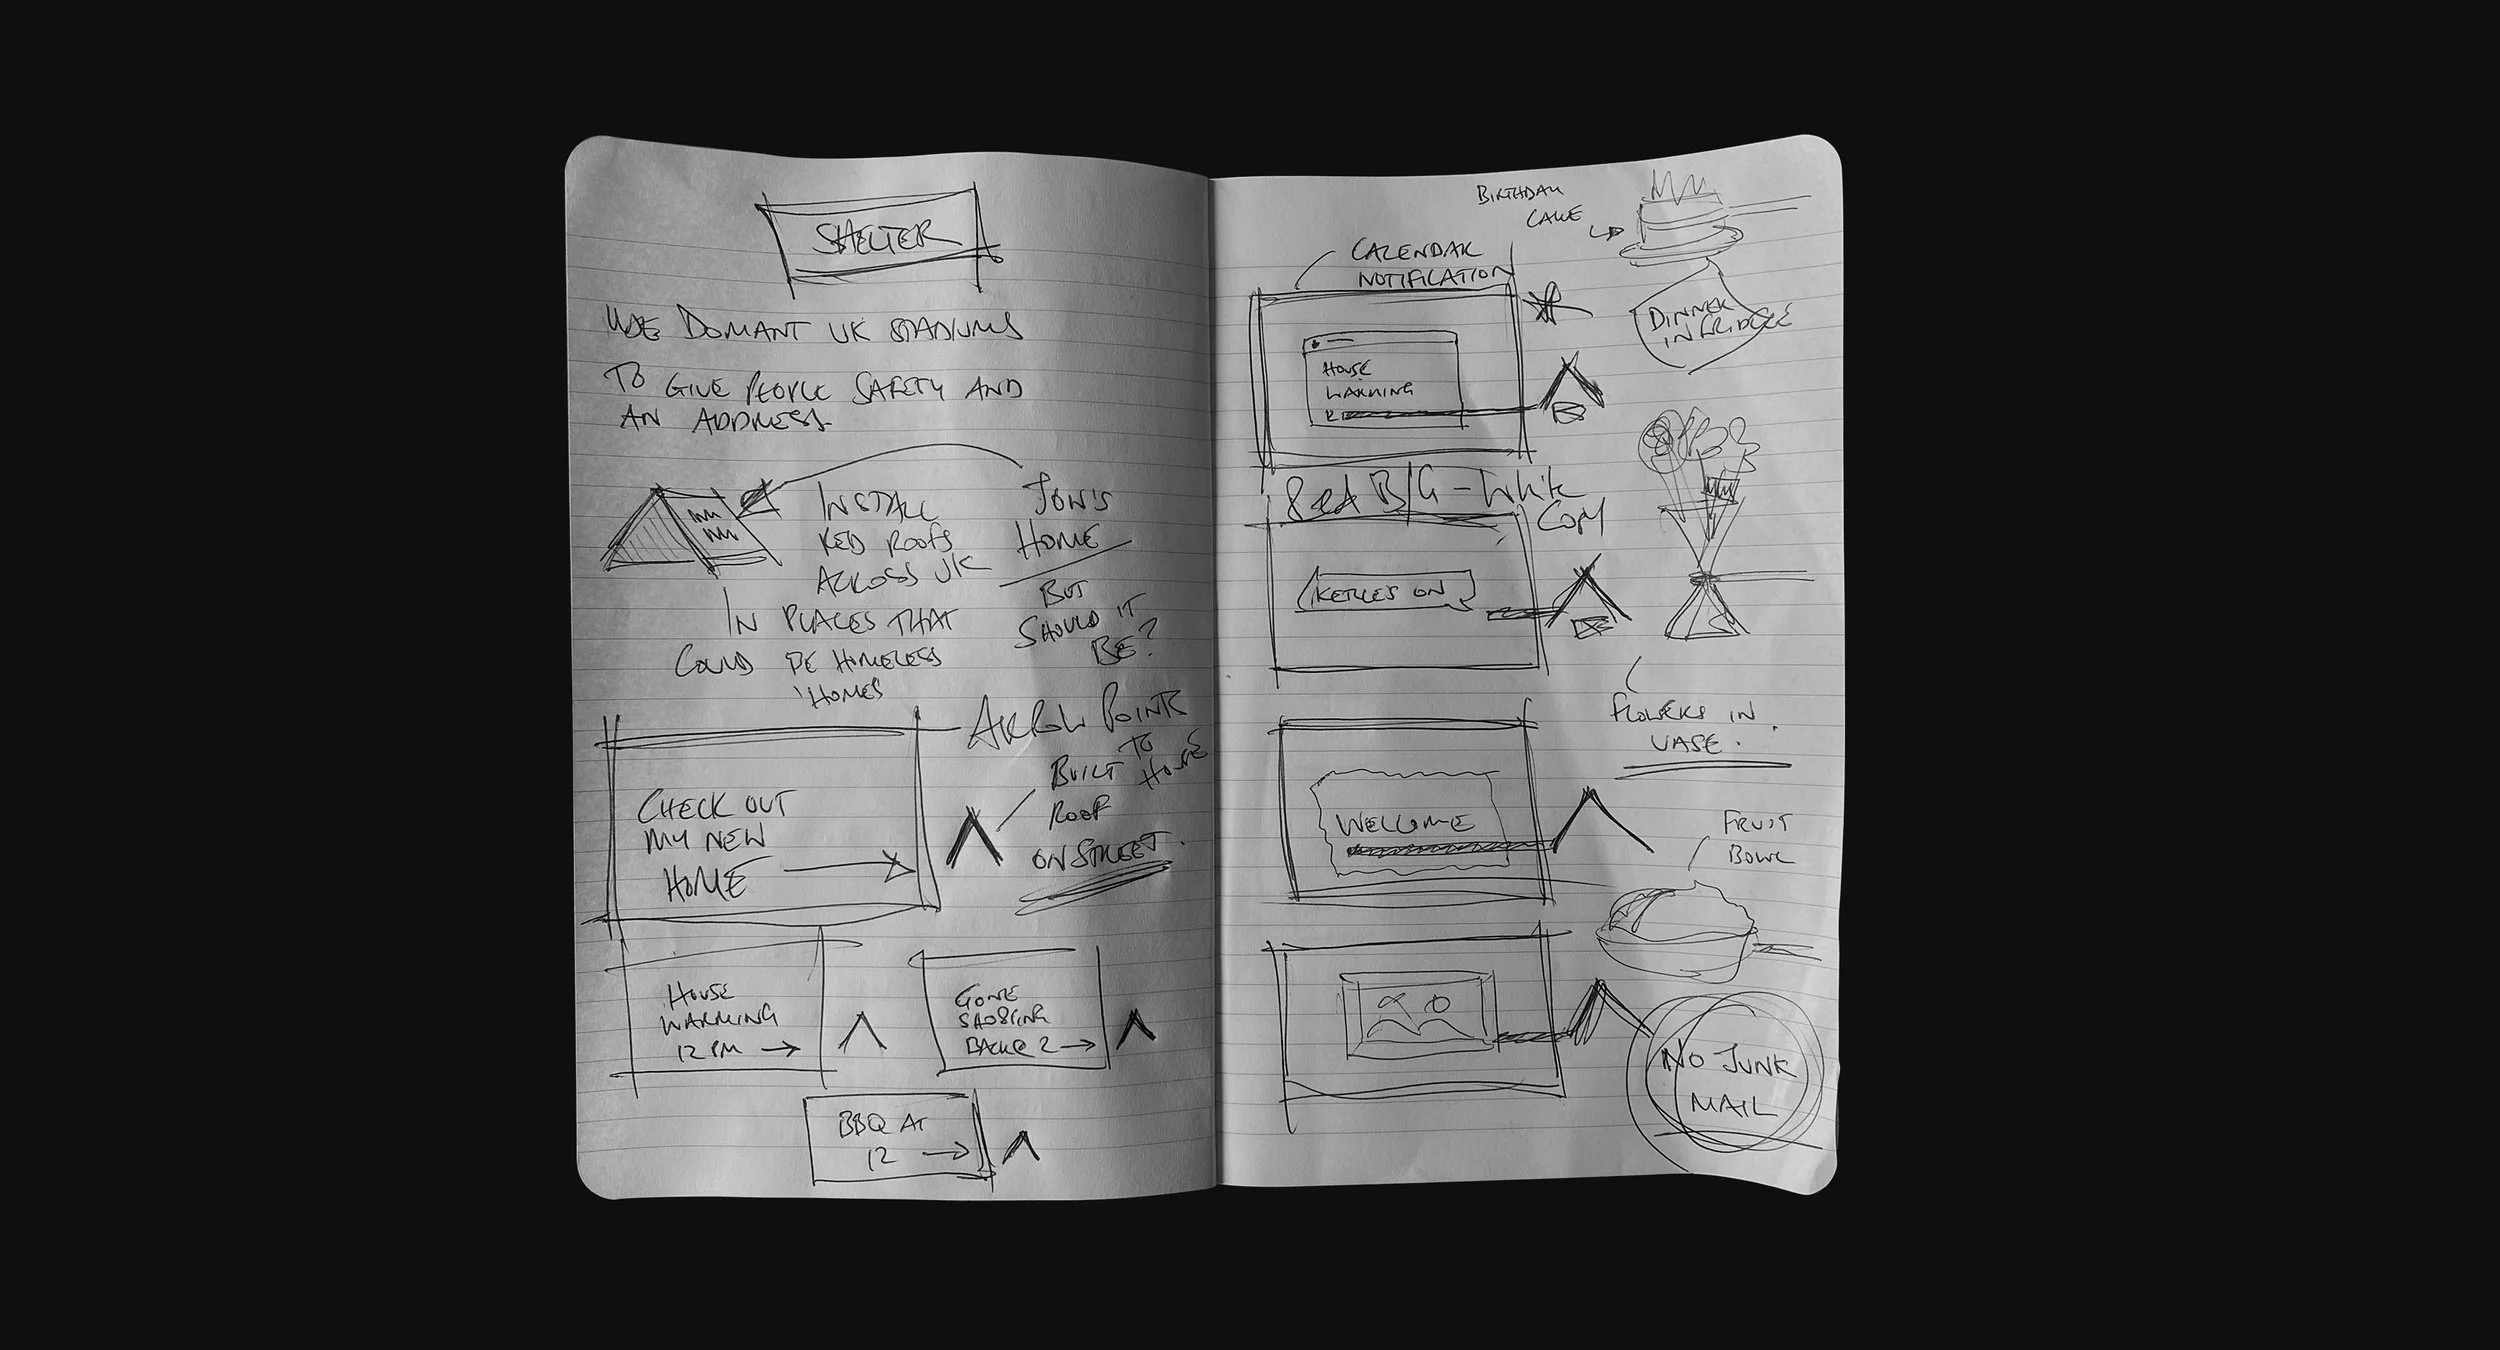 SHELTER
USE DOMANT UK STADIUMS
TO GIVE PEOPLE SAFETY AND
AN ADDRESS
INSTALL
RED ROOFS
ACROSS UK
IN PLACES THAT
COULD BE HOMELESS
'HOMES'
JON'S
HOME
BUT
SHOULD IT
BE?
CHECK OUT
MY NEW
HOME
ARROW POINTS
TO
HOUSE
BUILT
ROOF
ON STREET.
HOUSE
WARMING
12 PM
GONE
SHOPPING
BACK @ 2
BBQ AT
12
BIRTHDAY
CAKE
CALENDAR
NOTIFICATION
DINNER
IN FRIDGE
HOUSE
WARMING
Red B/G - White
Copy
KETTLES ON
FLOWERS IN
VASE.
WELCOME
FRUIT
BOWL
NO JUNK
MAIL